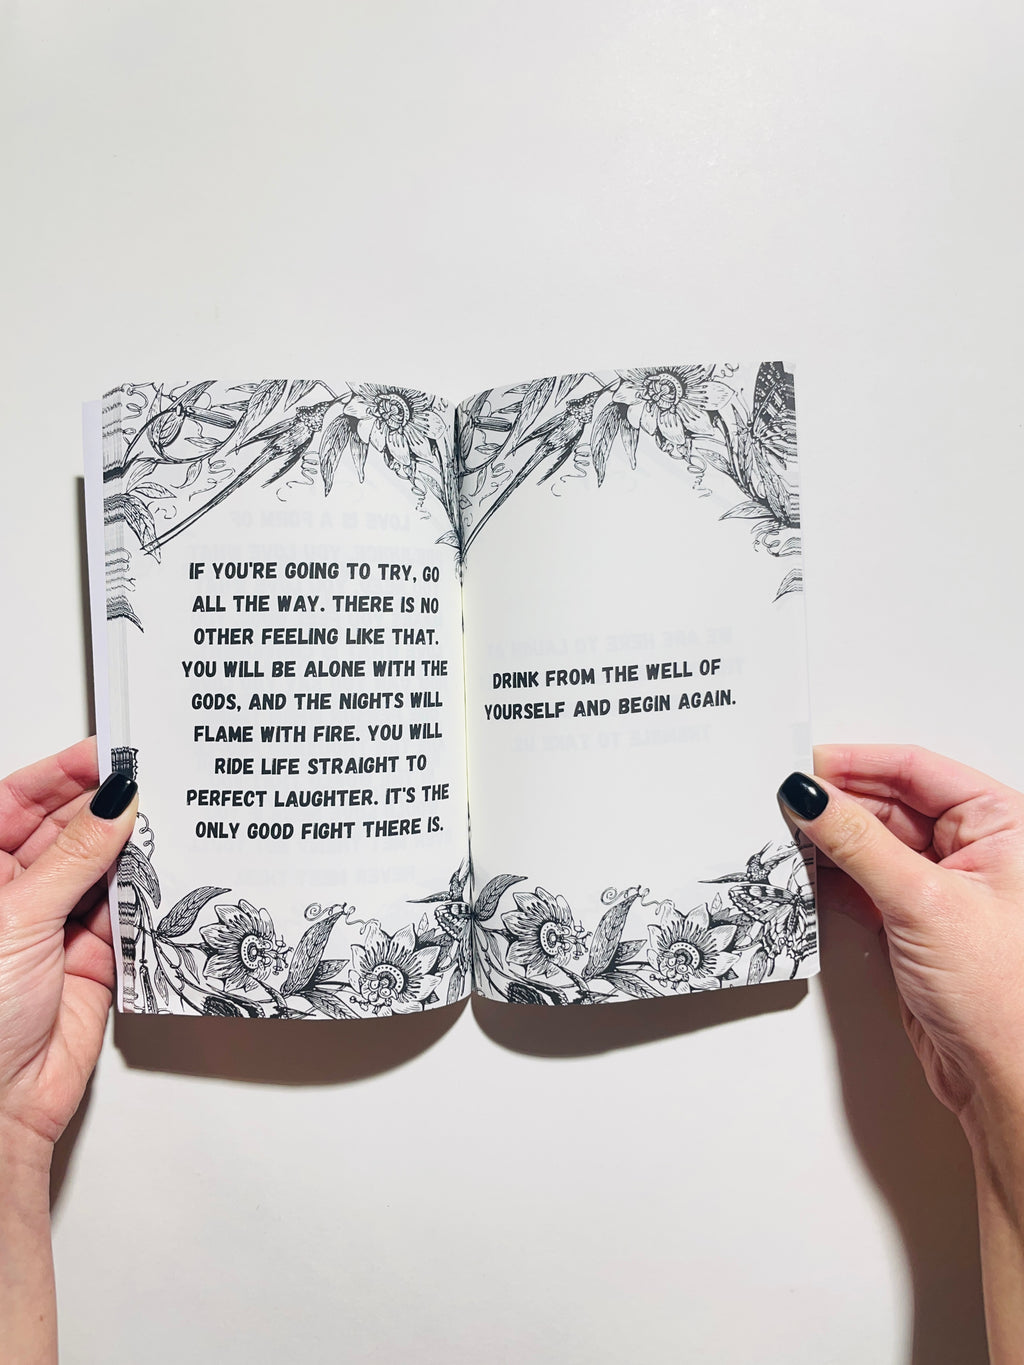 IF YOU'RE GOING TO TRY, GO
ALL THE WAY. THERE IS NO
OTHER FEELING LIKE THAT.
YOU WILL BE ALONE WITH THE
GODS, AND THE NIGHTS WILL
FLAME WITH FIRE. YOU WILL
RIDE LIFE STRAIGHT TO
PERFECT LAUGHTER. IT'S THE
ONLY GOOD FIGHT THERE IS.
DRINK FROM THE WELL OF
YOURSELF AND BEGIN AGAIN.